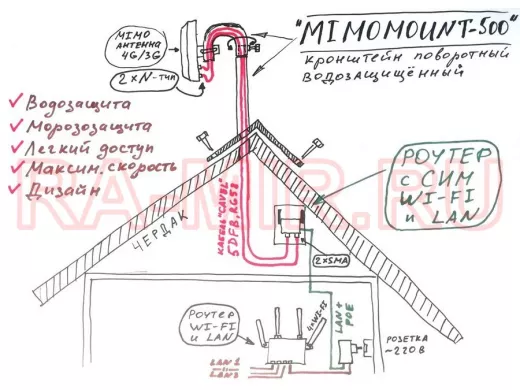 MIMO
АНТЕННА
4G/3G
2×N-тип
"MIMOMOUNT-500"
кронштейн поворотный
водозащищённый
✓ Водозащита
✓ Морозозащита
✓ Легкий доступ
✓ Максим. скорость
✓ Дизайн
РОУТЕР
с СИМ
WI-FI
и LAN
ЧЕРДАК
КАБЕЛЬ "CAVEL"
5DFB, RG58
2×SMA
RA-MIR.RU
Роутер
WI-FI
и LAN
WI-FI
LAN +
POE
РОЗЕТКА
~220В
LAN 1